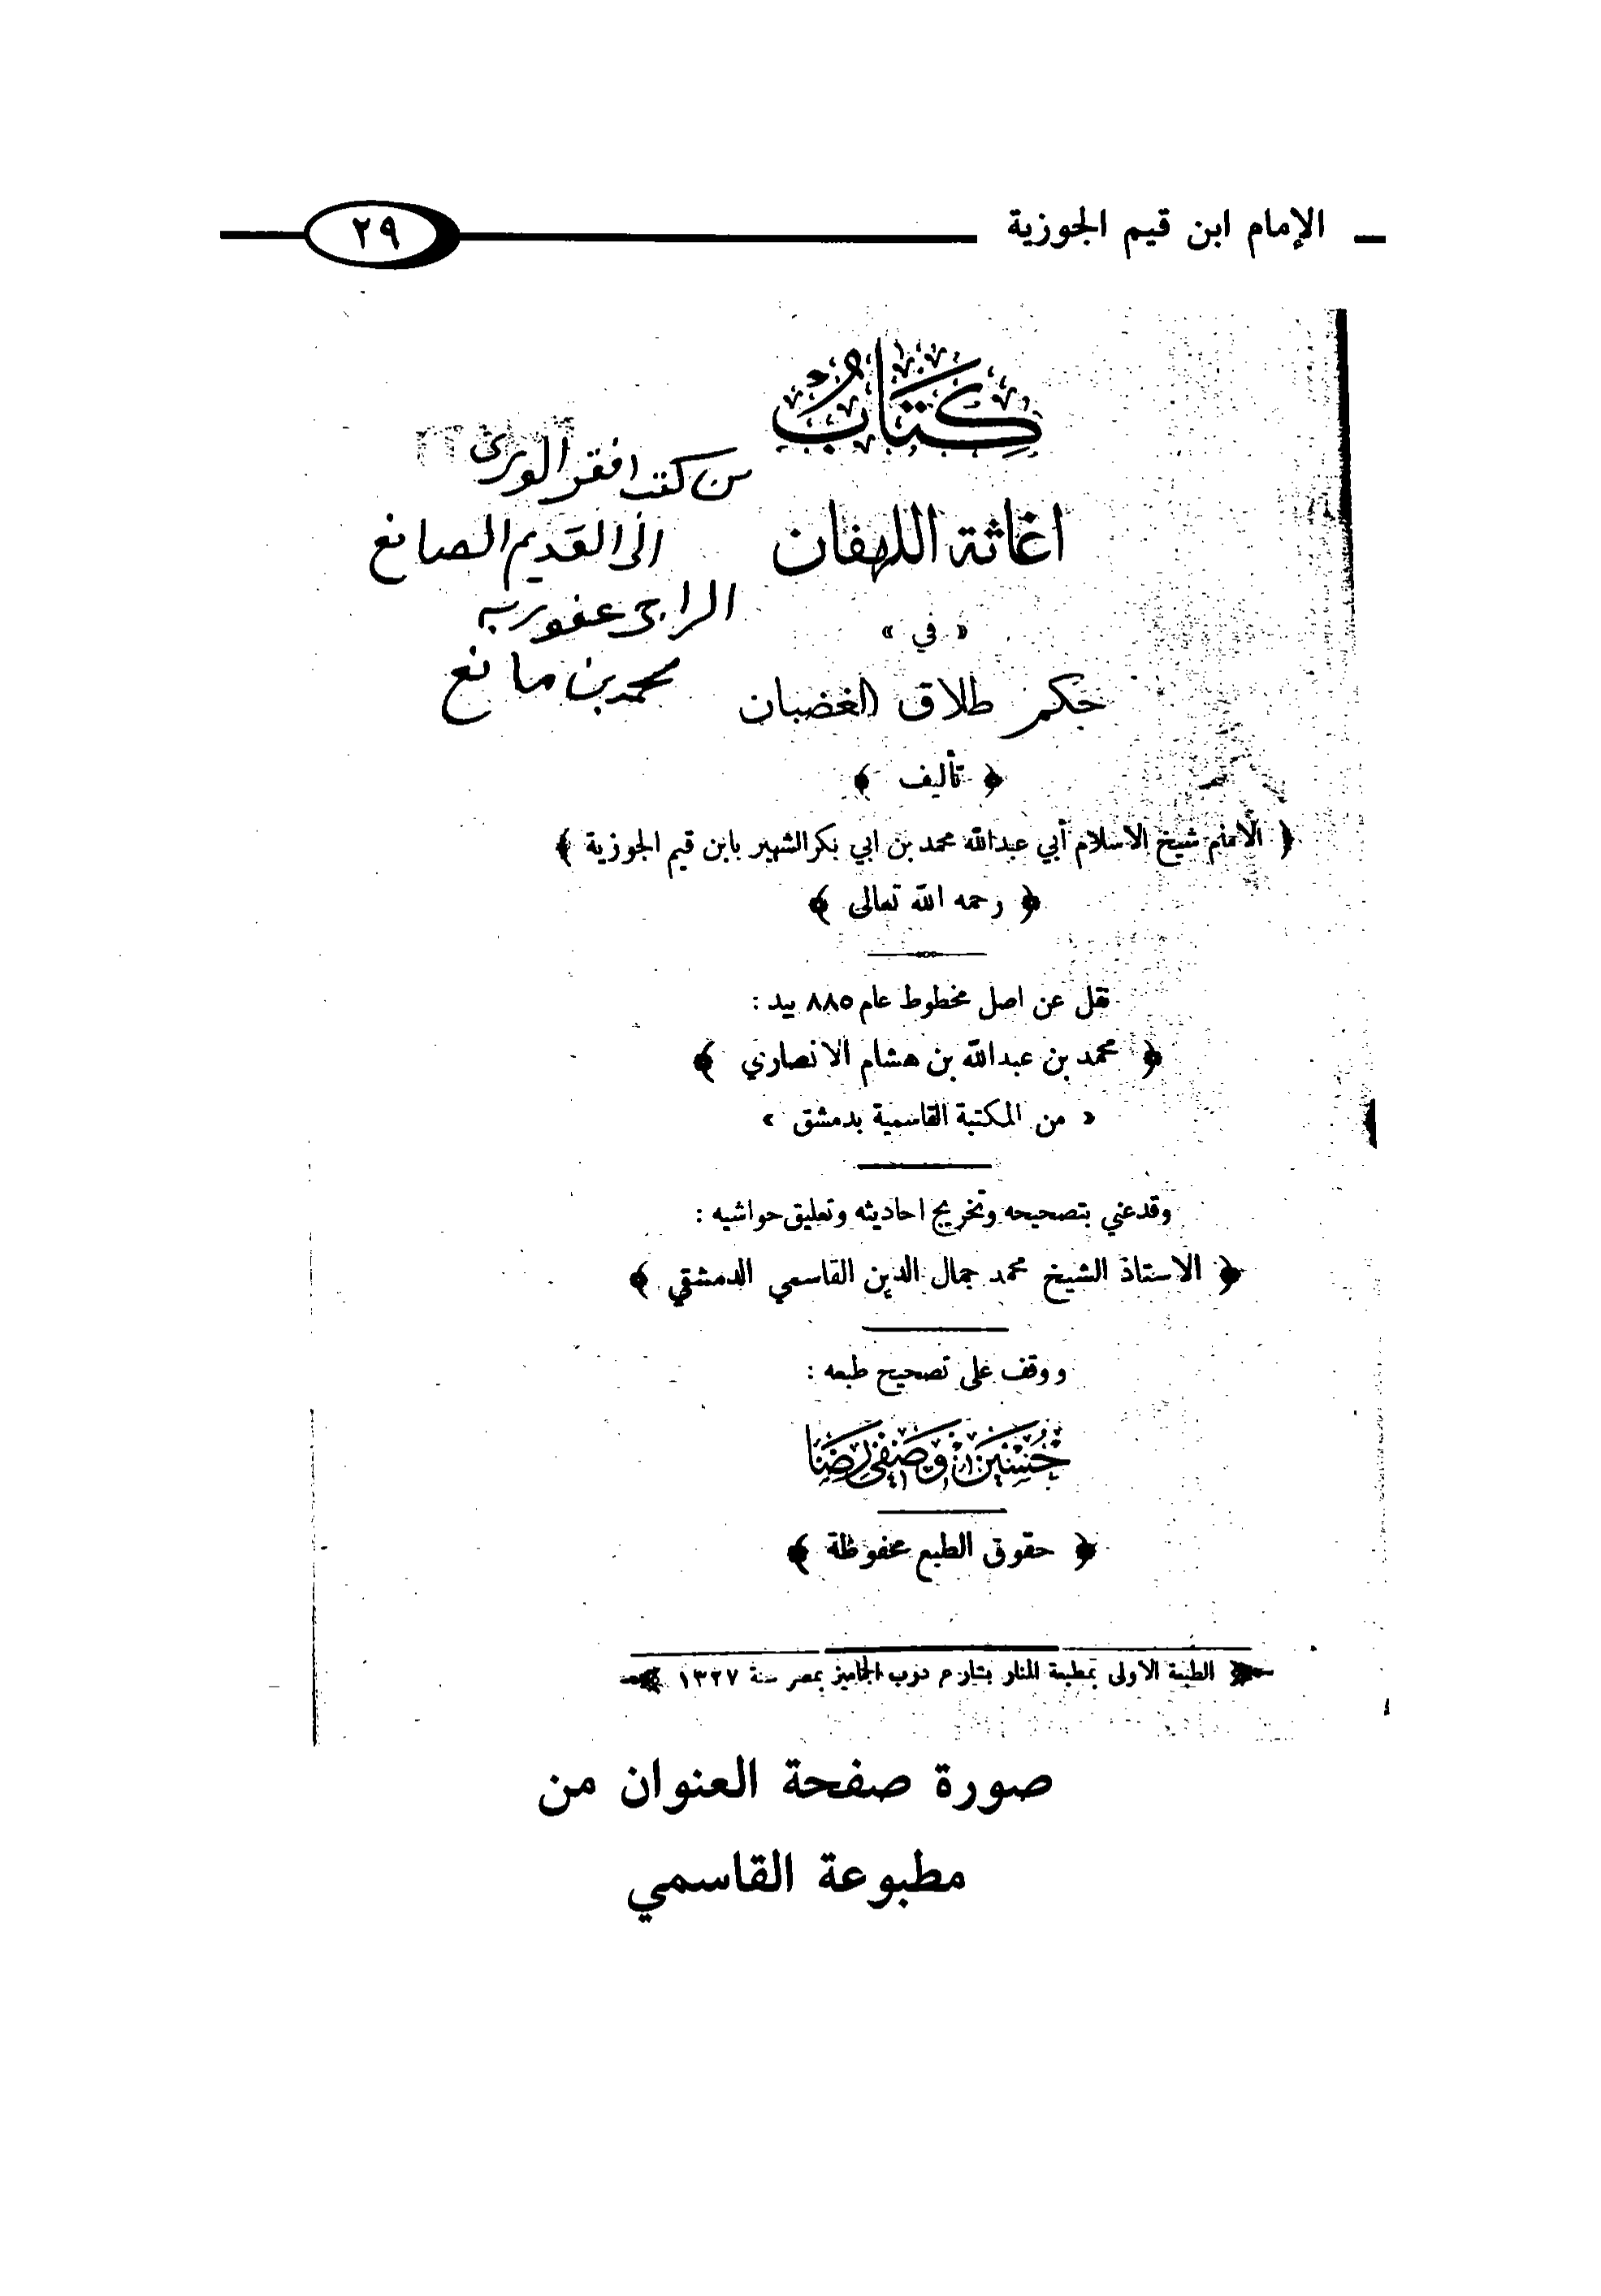 الإمام ابن قيم الجوزية
٢٩
كتاب
من كتب افقر الورى
الى القديم الصانع
الراجي عفو ربه
محمد بن مانع
اغاثة اللهفان
« في »
حكم طلاق الغضبان
﴿ تأليف ﴾
﴿ الامام شيخ الاسلام أبي عبدالله محمد بن ابي بكر الشهير بابن قيم الجوزية ﴾
﴿ رحمه الله تعالى ﴾
نقل عن اصل مخطوط عام ٨٨٥ بيد :
﴿ محمد بن عبدالله بن هشام الانصاري ﴾
« من المكتبة القاسمية بدمشق »
وقدعني بتصحيحه وتخريج احاديثه وتعليق حواشيه :
﴿ الاستاذ الشيخ محمد جمال الدين القاسمي الدمشقي ﴾
ووقف على تصحيح طبعه :
حُسَيْن وَصْفي رِضَا
﴿ حقوق الطبع محفوظة ﴾
﴿ الطبعة الاولى بمطبعة المنار بشارع درب الجماميز بمصر سنة ١٣٢٧ ﴾
صورة صفحة العنوان من
مطبوعة القاسمي